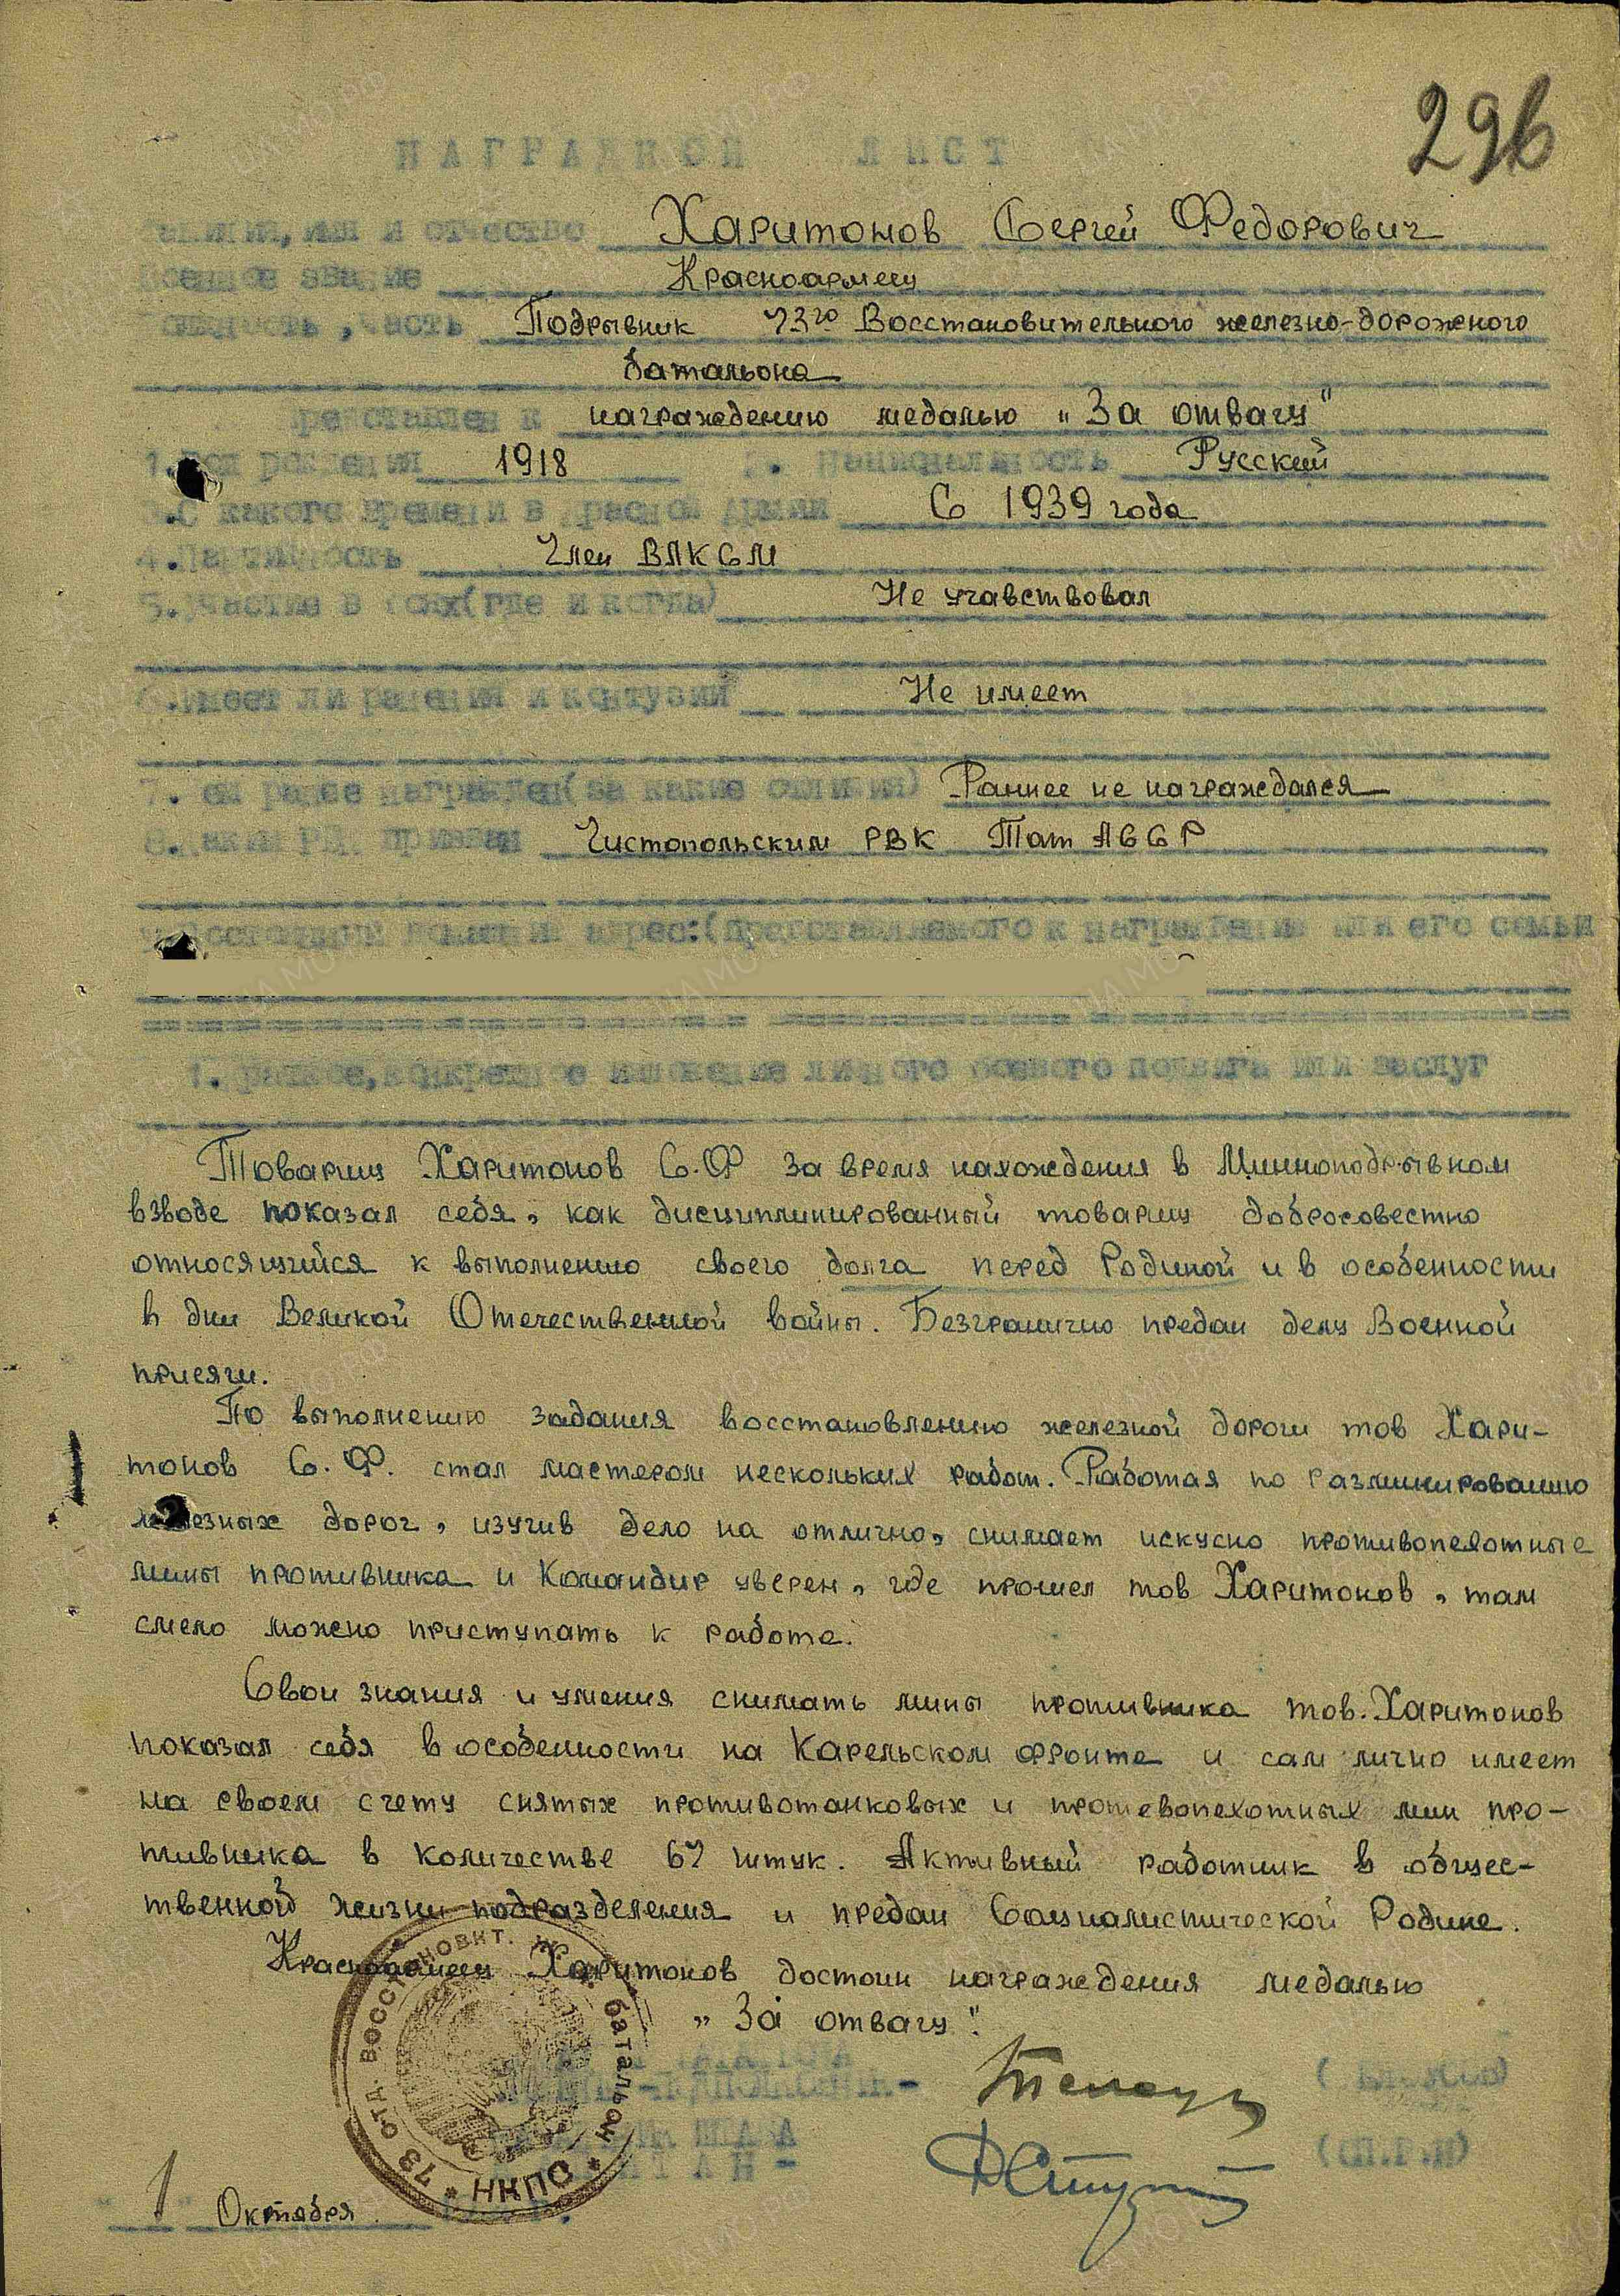 296
НАГРАДНОЙ ЛИСТ
Фамилия, имя и отчество Харитонов Сергей Федорович
Военное звание Красноармеец
Должность, часть Подрывник 73го Восстановительного железно-дорожного
батальона
Представлен к награждению медалью „За отвагу"
1. Год рождения 1918 2. Национальность Русский
3. С какого времени в Красной Армии С 1939 года
4. Партийность Член ВЛКСМ
5. Участие в боях (где и когда) Не учавствовал
6. Имеет ли ранения и контузии Не имеет
7. Чем ранее награжден (за какие отличия) Раннее не награждался
8. Каким РВК призван Чистопольским РВК Тат АССР
Постоянный домашний адрес: (представляемого к награждению или его семьи
1. Краткое, конкретное изложение личного боевого подвига или заслуг
Товарищ Харитонов С.Ф за время нахождения в Минноподрывном
взводе показал себя, как дисциплинированный товарищ добросовестно
относящийся к выполнению своего долга перед Родиной и в особенности
в дни Великой Отечественной войны. Безгранично предан делу Военной
присяги.
По выполнению задания восстановлению железной дороги тов Хари-
тонов С. Ф. стал мастером нескольких работ. Работая по разминированию
железных дорог, изучив дело на отлично, снимает искусно противопехотные
мины противника и Командир уверен, где прошел тов Харитонов, там
смело можно приступать к работе.
Свои знания и умения снимать мины противника тов. Харитонов
показал себя в особенности на Карельском фронте и сам лично имеет
на своем счету снятых противотанковых и протевопехотных мин про-
тивника в количестве 67 штук. Активный работник в общес-
твенной жизни подразделения и предан Социалистической Родине.
Красноармеец Харитонов достоин награждения медалью
„За отвагу".
73 отд. восстановит. ж.д. батальон * НКПС *
"1" Октября